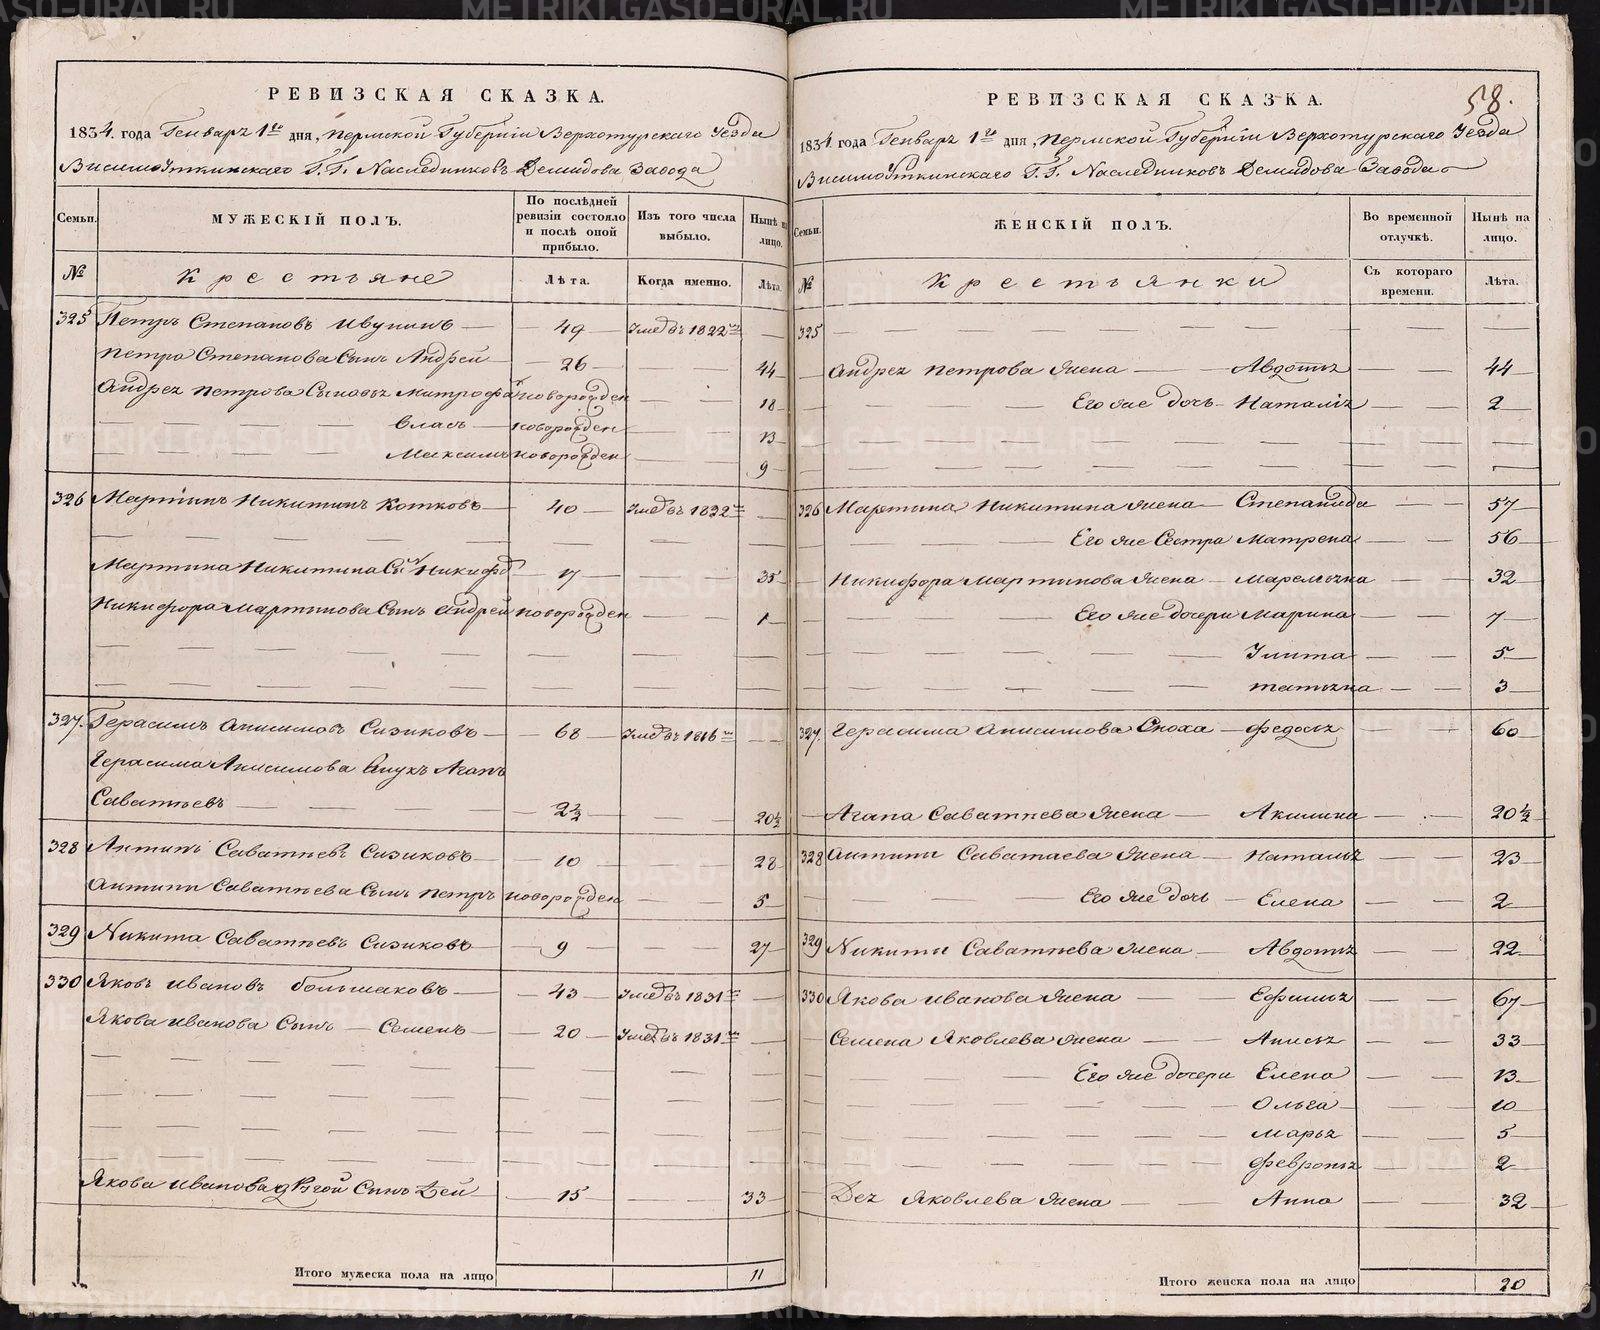 РЕВИЗСКАЯ СКАЗКА.
1834. года Генваря 1го дня, Пермской Губернiи Верхотурскаго Уезда
Висимоуткинскаго Г.Г. Наследниковъ Демидова Завода
Семьи.
МУЖЕСКIЙ ПОЛЪ.
По послѣдней ревизiи состояло и послѣ оной прибыло.
Изъ того числа выбыло.
Нынѣ на лицо.
№ Крестьяне Лѣта. Когда именно. Лѣта.
325 Петръ Степановъ Ивунинъ — 49 — Умеръ въ 1822мъ —
Петра Степанова Сынъ Андрей — 26 — — 44
Андрея Петрова Сыновья Митрофанъ новорожден — — 18
Власъ — новорожден — — 13
Максимъ новорожден — — 9
326 Мартинъ Никитинъ Котковъ — 40 — Умеръ въ 1822мъ —
Мартина Никитина Сынъ Никифоръ — 17 — — 35
Никифора Мартинова Сынъ Андрей новорожден — — 1
327. Герасимъ Анисимовъ Сизиковъ — 68 — Умеръ въ 1816мъ —
Герасима Анисимова Внукъ Агапъ
Саватеевъ — — — 2½ — — 20½
328 Антипъ Саватеевъ Сизиковъ — 10 — — 28
Антипы Саватеева Сынъ Петръ новорожден — — 5
329 Никита Саватеевъ Сизиковъ — 9 — — 27
330 Яковъ Ивановъ Большаковъ — 43 — Умеръ въ 1831мъ —
Якова Иванова Сынъ — Семенъ — 20 — Умеръ въ 1831мъ —
Якова Иванова другой Сынъ Дей — 15 — — 33
Итого мужеска пола на лицо 11
58.
РЕВИЗСКАЯ СКАЗКА.
1834. года Генваря 1го дня, Пермской Губернiи Верхотурскаго Уезда
Висимоуткинскаго Г.Г. Наследниковъ Демидова Завода
Семьи.
ЖЕНСКIЙ ПОЛЪ.
Во временной отлучкѣ.
Нынѣ на лицо.
№ Крестьянки Съ котораго времени. Лѣта.
325 — — — — — —
Андрея Петрова жена — Авдотья — — 44
Его же дочь — Наталья — — 2
326 Мартина Никитина жена — Степанида — 57
Его же Сестра Матрена — — 56
Никифора Мартинова жена — Маремьяна — — 32
Его же дочери Марина — — 7
Улита — — 5
Татьяна — — 3
327. Герасима Анисимова Сноха — Федосья — — 60
Агапа Саватеева жена — Акилина — — 20½
328 Антипы Саватеева жена — Наталья — — 23
Его же дочь — Елена — — 2
329 Никиты Саватеева жена — Авдотья — — 22
330 Якова Иванова жена — Ефимья — — 67
Семена Яковлева жена — — Анисья — — 33
Его же дочери Елена — — 13
Ольга — — 10
Марья — — 5
Февронья — — 2
Дея Яковлева жена — — Анна — — 32
Итого женска пола на лицо 20
METRIKI.GASO-URAL.RU